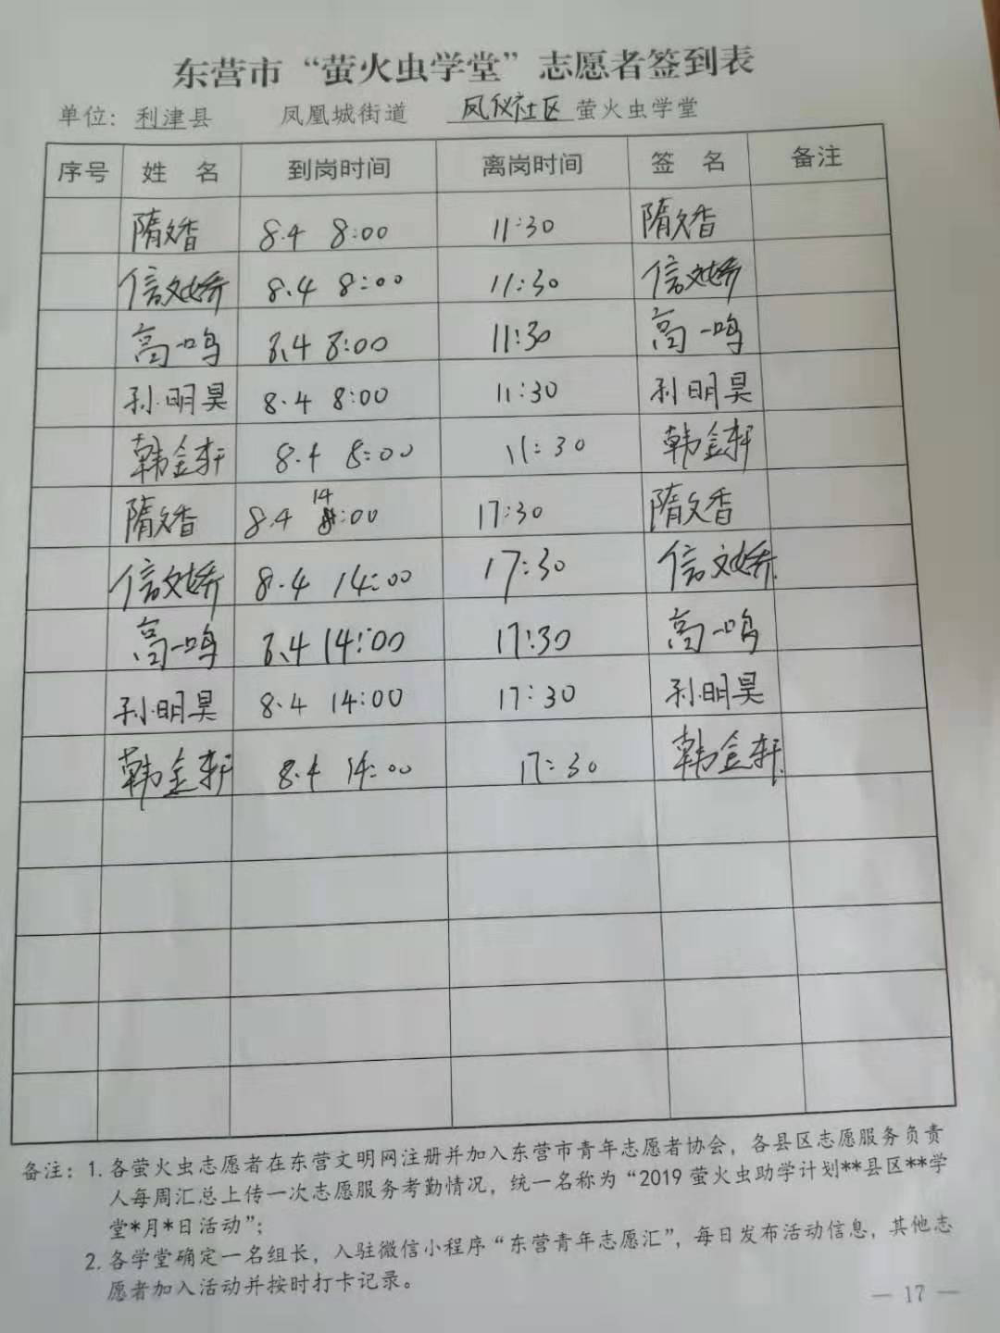 东营市“萤火虫学堂”志愿者签到表
单位：利津县 凤凰城街道 凤仪社区 萤火虫学堂
序号 姓 名 到岗时间 离岗时间 签 名 备注
隋文香 8.4 8:00 11:30 隋文香
信文娇 8.4 8:00 11:30 信文娇
高一鸣 8.4 8:00 11:30 高一鸣
孙明昊 8.4 8:00 11:30 孙明昊
韩金轩 8.4 8:00 11:30 韩金轩
隋文香 8.4 14:00 17:30 隋文香
信文娇 8.4 14:00 17:30 信文娇
高一鸣 8.4 14:00 17:30 高一鸣
孙明昊 8.4 14:00 17:30 孙明昊
韩金轩 8.4 14:00 17:30 韩金轩
备注：1. 各萤火虫志愿者在东营文明网注册并加入东营市青年志愿者协会，各县区志愿服务负责
人每周汇总上传一次志愿服务考勤情况，统一名称为“2019 萤火虫助学计划**县区**学
堂*月*日活动”；
2. 各学堂确定一名组长，入驻微信小程序“东营青年志愿汇”，每日发布活动信息，其他志
愿者加入活动并按时打卡记录。
— 17 —